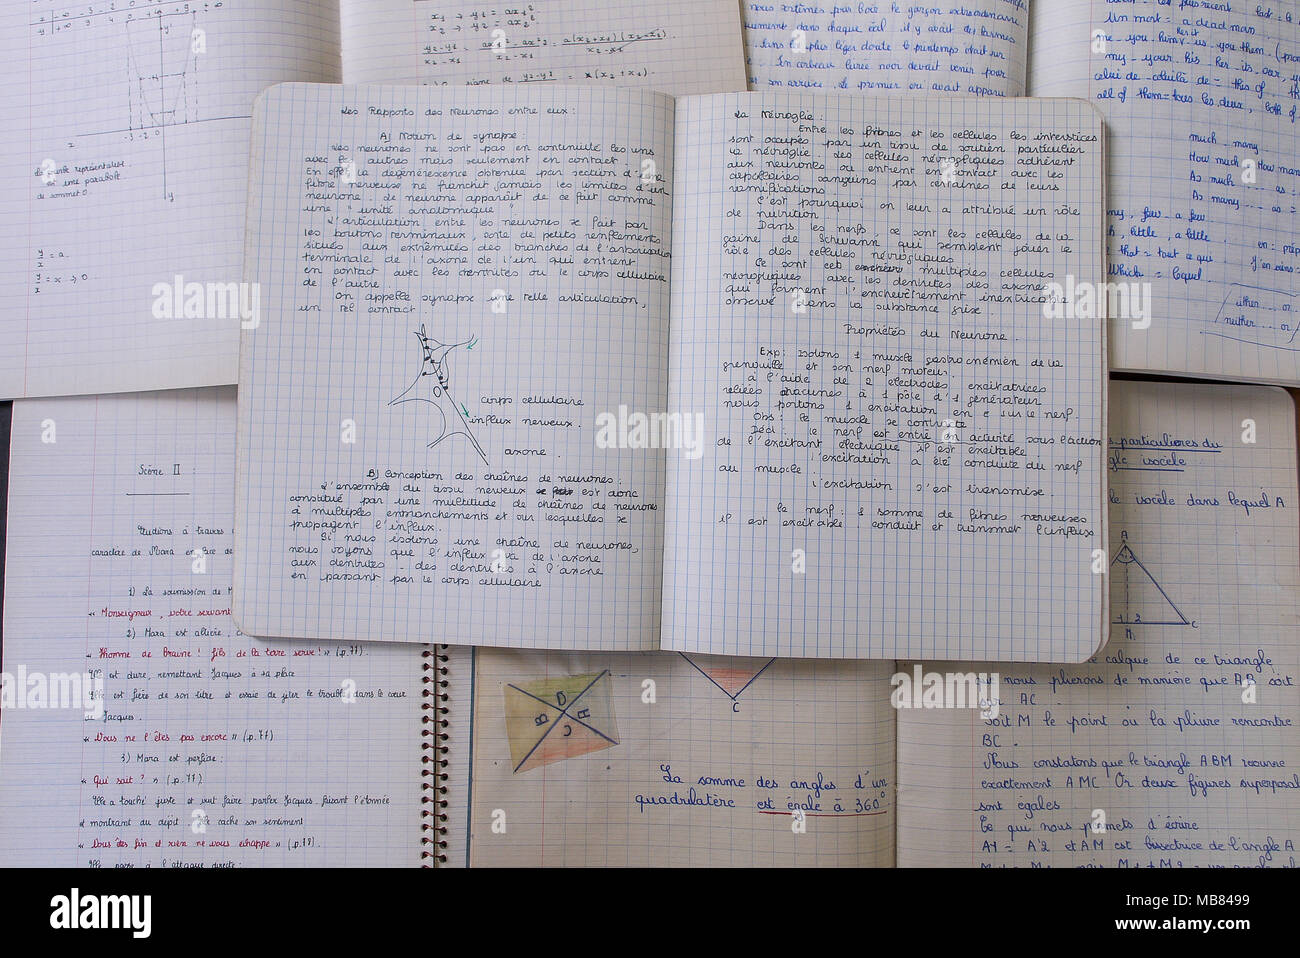 Les Rapports des Neurones entre eux :
A) Notion de synapse :
Les neurones ne sont pas en continuité les uns
avec les autres mais seulement en contact.
En effet la dégénérescence obtenue par section d'une
fibre nerveuse ne franchit jamais les limites d'un
neurone. Le neurone apparaît de ce fait comme
une "unité anatomique"
L'articulation entre les neurones se fait par
les boutons terminaux, sorte de petits renflements
situés aux extrémités des branches de l'arborisation
terminale de l'axone de l'un qui entrent
en contact avec les dentrites ou le corps cellulaire
de l'autre.
On appelle synapse une telle articulation,
un tel contact.
corps cellulaire
influx nerveux.
axone.
B) Conception des chaînes de neurones :
L'ensemble du tissu nerveux est donc
constitué par une multitude de chaînes de neurones
à multiples entranchements et sur lesquelles se
propagent l'influx.
Si nous isolons une chaîne de neurones,
nous voyons que l'influx va de l'axone
aux dentrites - des dentrites à l'axone
en passant par le corps cellulaire
La Névroglie :
Entre les fibres et les cellules les interstices
sont occupés par un tissu de soutien particulier
la névroglie. Des cellules névrogliques adhèrent
aux neurones ou entrent en contact avec les
capillaires sanguins par certaines de leurs
ramifications.
C'est pourquoi on leur a attribué un rôle
de nutrition.
Dans les nerfs, ce sont les cellules de la
gaine de Schwann qui semblent jouer le
rôle des cellules névrogliques.
Ce sont ces multiples cellules
névrogliques avec les dentrites des axones
qui forment l'enchevêtrement inextricable
observé dans la substance grise.
Propriétés du Neurone.
Exp: isolons 1 muscle gastrocnémien de la
grenouille et son nerf moteur.
à l'aide de 2 électrodes excitatrices
reliées chacune à 1 pôle d'1 générateur
nous portons 1 excitation en e sur le nerf.
Obs: le muscle se contracte
Déd: le nerf est entré en activité sous l'action
de l'excitant électrique il est excitable.
l'excitation a été conduite du nerf
au muscle.
l'excitation s'est transmise.
Le nerf : 1 somme de fibres nerveuses
il est excitable, conduit et transmet l'influx
y -∞ -3 -2 -1 0
-3 -2 0
La courbe représentative
est une parabole
de sommet O
y/x = a.
y/x = x → 0
x1 → y1 = ax1²
x2 → y2 = ax2²
y2-y1
x2-x1
signe de y2-y1 = (x2+x1).
le garçon extraordinaire
dans chaque œil. il y avait des larmes
sans le plus léger doute le printemps était sur
Un corbeau livrée noir devait venir pour
son arrivée. Le premier qu'avait apparu
Un mort = a dead man.
me_you_him_it_us_you_them
my_your_his_her_its_our
celui de_celui là de = this of
all of them = tous les deux,
much _ many
How much _ How man
As much .... as =
As many .... as =
few _ a few
little, a little.
that = tout ce que.
Which = lequel
either ... or
neither ... or
Scène II :
Étudions à travers
caractère de Mara en face de
1) La soumission de M
« Monseigneur, votre servant
2) Mara est altière,
« L'homme de Braine ! fils de la terre serve ! » (p.77).
Elle est dure, remettant Jacques à sa place
Elle est fière de son titre et essaie de jeter le trouble dans le cœur
de Jacques.
« Vous ne l'êtes pas encore » (p.77)
3) Mara est perfide :
« Qui sait ? » (p.77)
Elle a touché juste et veut faire parler Jacques. faisant l'étonnée
et montrant du dépit. Elle cache son sentiment
« Vous êtes fin et rien ne vous échappe » (p.77).
Elle passe à l'attaque directe :
A B C D
C
La somme des angles d'un
quadrilatère est égale à 360°
s particulières du
gle isocèle.
le isocèle dans lequel A
A
1 2
M C
calque de ce triangle
que nous plierons de manière que AB soit
sur AC.
Soit M le point où la pliure rencontre
BC.
Nous constatons que le triangle ABM recouvre
exactement AMC Or deux figures superposa
sont égales.
Ce qui nous permets d'écrire
A1 = A2 et AM est bissectrice de l'angle A
alamy
Image ID: MB8499
www.alamy.com